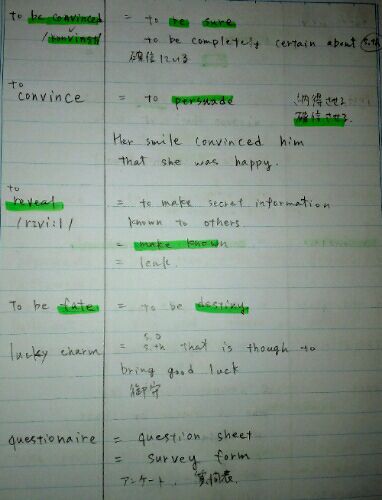 to be convinced = to be sure
/kənvinst/ to be completely certain about s.th
確信している
to
convince = to persuade 納得させる
確信させる
Her smile convinced him
that she was happy.
to
reveal = to make secret information
/rɪvíːl/ known to others.
= make known
= leak.
To be fate = to be destiny
s.o
lucky charm = s.th that is though to
bring good luck
御守
questionaire = question sheet
= survey form
アンケート, 質問表